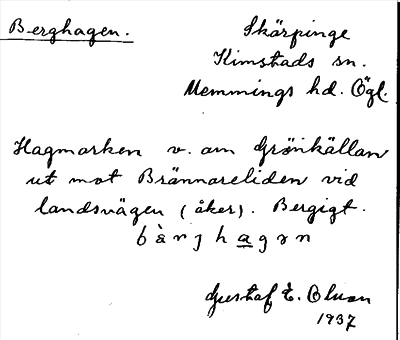 Berghagen.
Skärpinge
Kimstads sn.
Memmings hd. Ögl.
Hagmarken v. om Grönkällan
ut mot Brännareliden vid
landsvägen (åker). Bergigt.
Gustaf E. Olson
1937